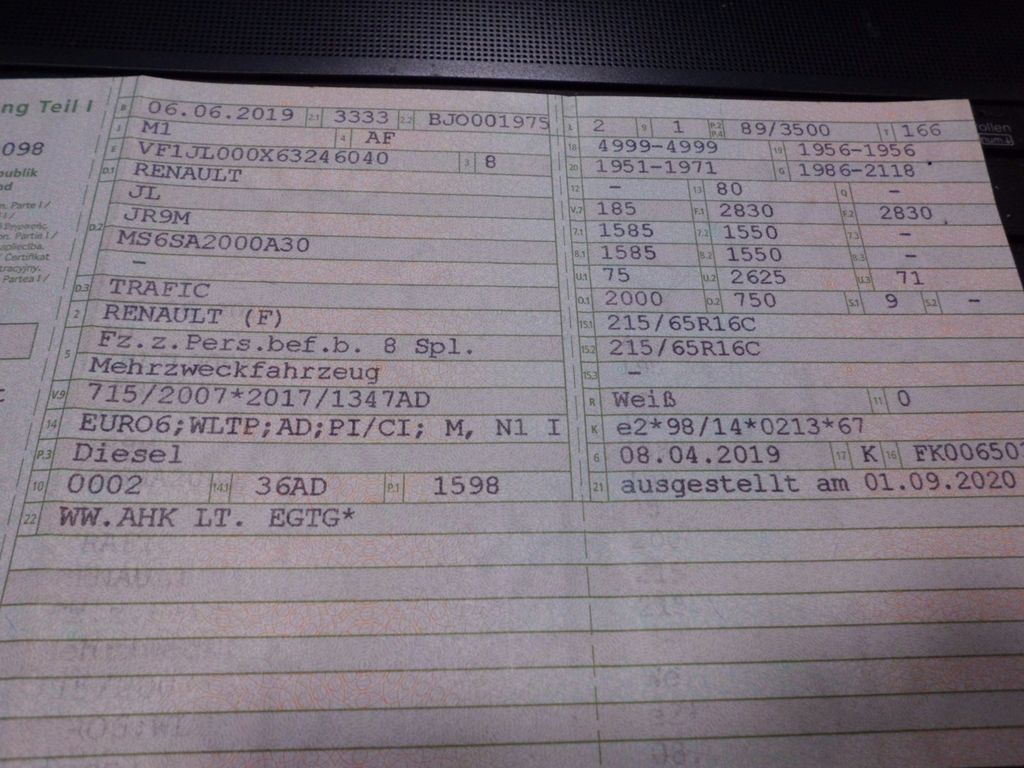 ng Teil I
098
publik
nd
B 06.06.2019 2.1 3333 2.2 BJO001975
J M1 4 AF
E VF1JL000X63246040 3 8
D.1 RENAULT
JL
D.2 JR9M
MS6SA2000A30
–
D.3 TRAFIC
2 RENAULT (F)
5 Fz.z.Pers.bef.b. 8 Spl.
Mehrzweckfahrzeug
V.9 715/2007*2017/1347AD
14 EURO6;WLTP;AD;PI/CI; M, N1 I
P.3 Diesel
10 0002 14.1 36AD P.1 1598
22 WW.AHK LT. EGTG*
L 2 9 1 P.2 P.4 89/3500 T 166
18 4999-4999 19 1956-1956
20 1951-1971 G 1986-2118
12 – 13 80 Q –
V.7 185 F.1 2830 F.2 2830
7.1 1585 7.2 1550 7.3 –
8.1 1585 8.2 1550 8.3 –
U.1 75 U.2 2625 U.3 71
O.1 2000 O.2 750 S.1 9 S.2 –
15.1 215/65R16C
15.2 215/65R16C
15.3 –
R Weiß 11 0
K e2*98/14*0213*67
6 08.04.2019 17 K 16 FK006503
21 ausgestellt am 01.09.2020